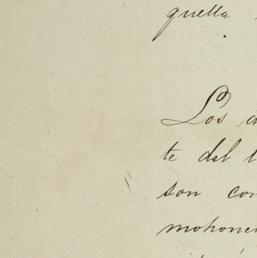 quella
Los
te del
son con
mohone